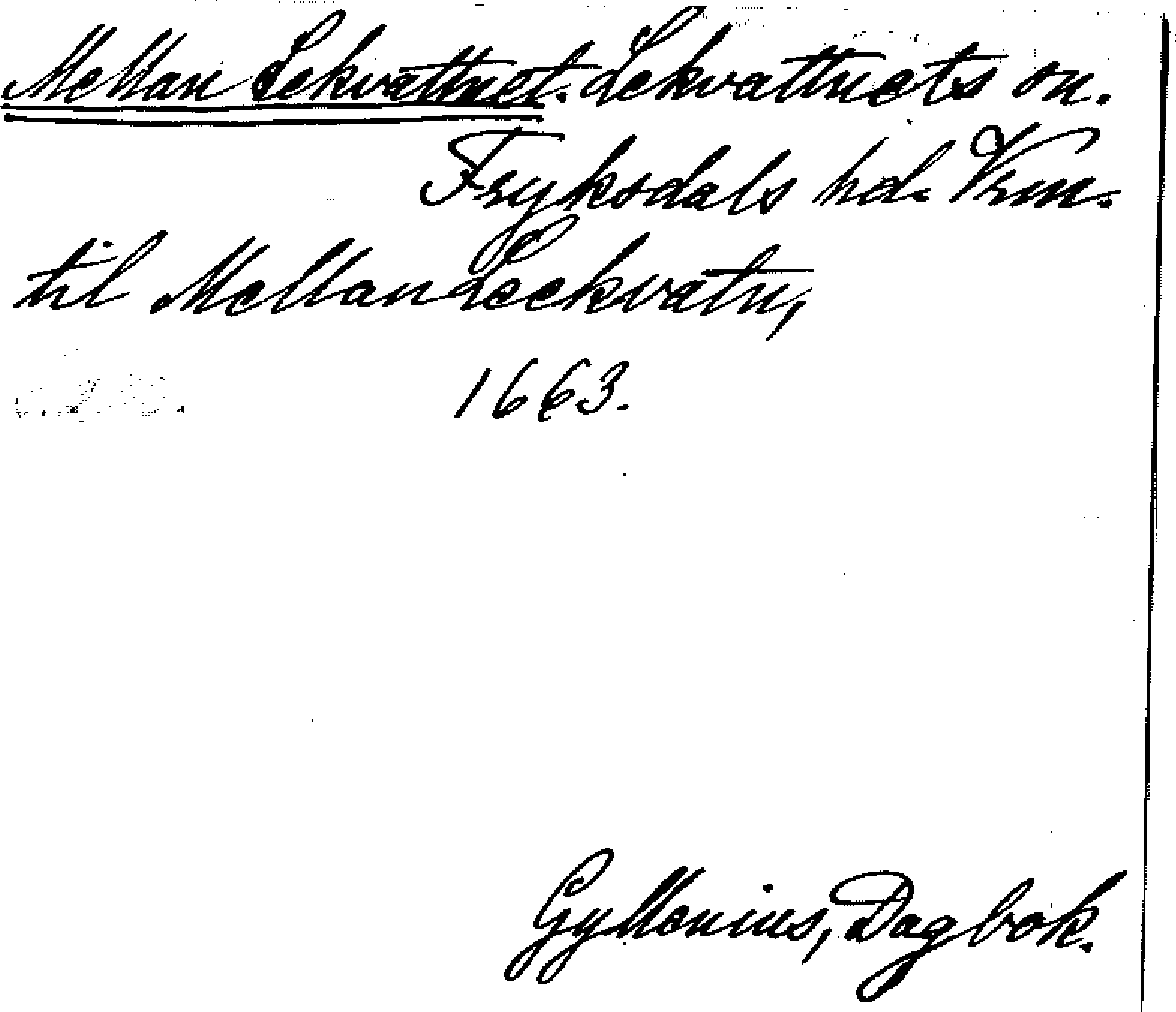 Mellan Lekvattnet. Lekvattnets sn.
Fryksdals hd. Vrm.
til Mellan Leekvatn,
1663.
Gyllenius, Dagbok.